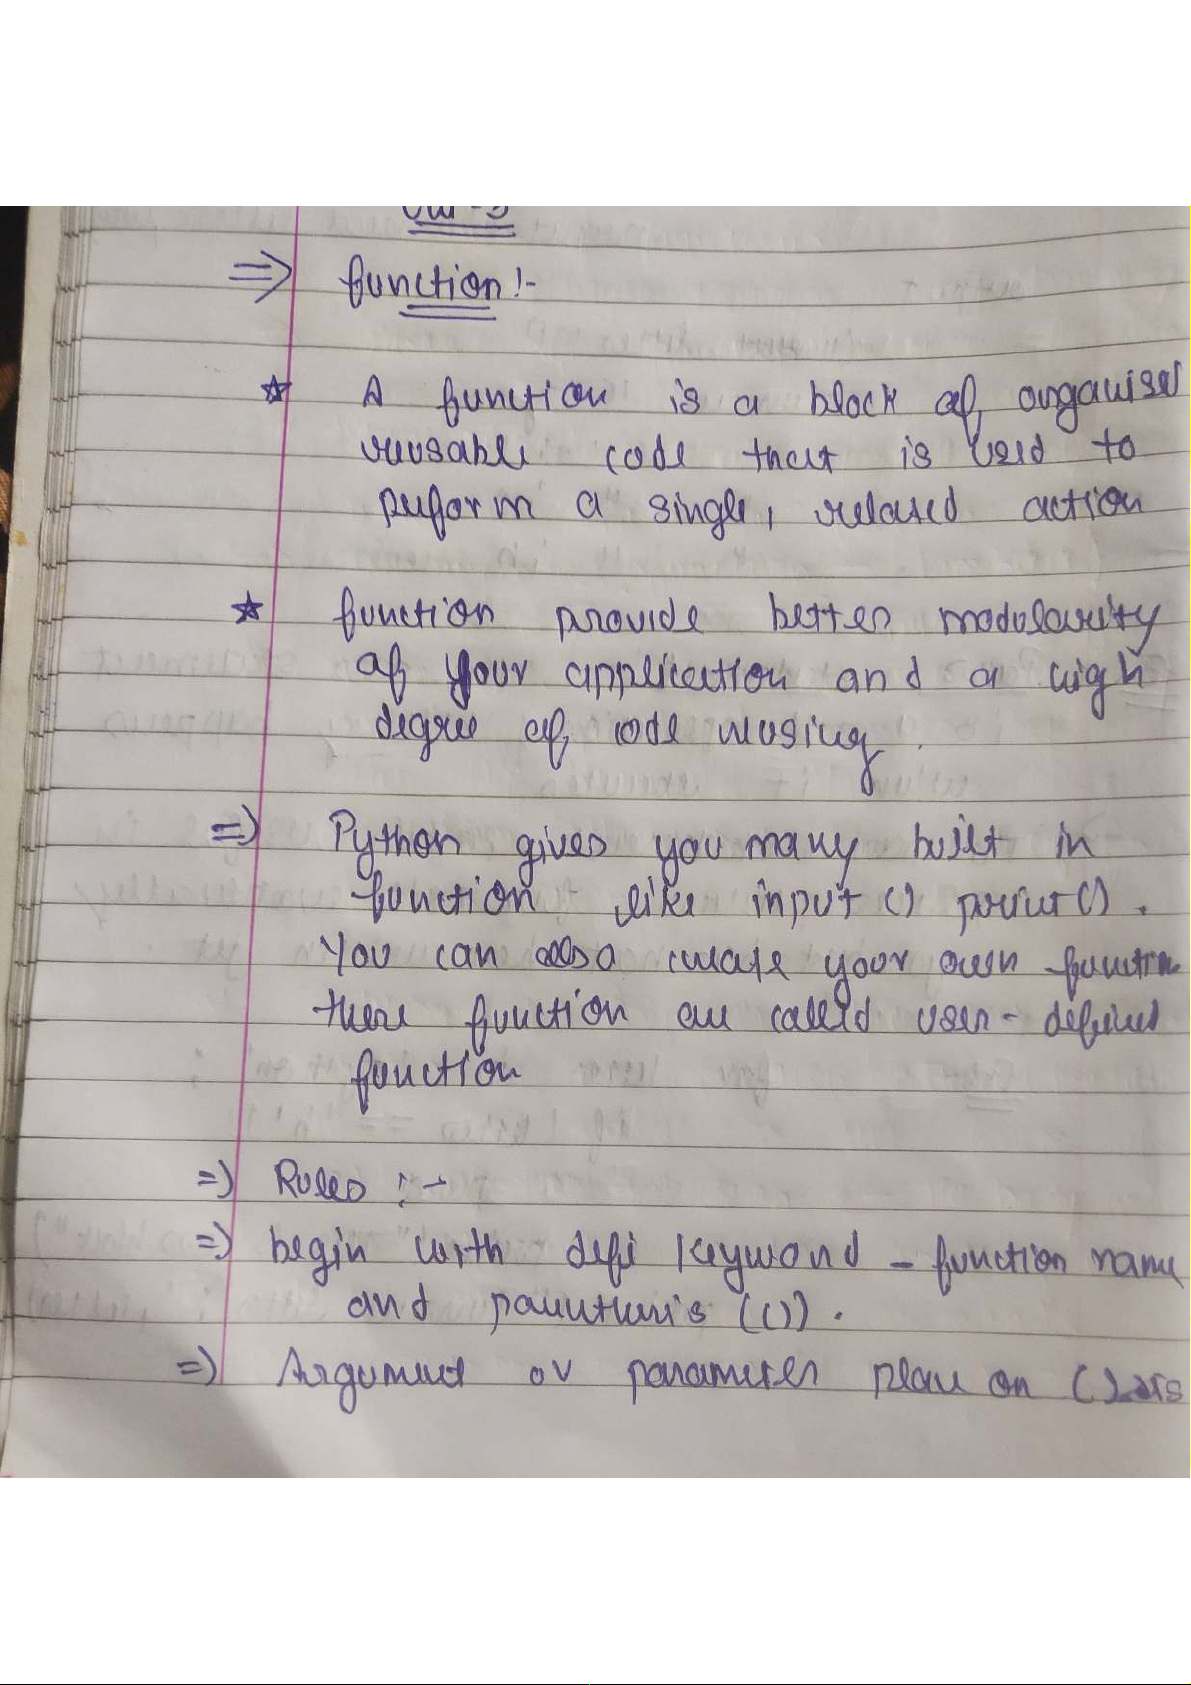 ⇒ function :-
☆ A function is a block of organised
reusable code that is used to
perform a single, related action
☆ function provide better modularity
of your application and a high
degree of code reusing.
⇒) Python gives you many built in
function like input () print().
You can also create your own function
these function are called user-defined
function
⇒) Rules :-
⇒) begin with defi keyword - function name
and parenthesis (()).
⇒) Argument or parameter place on ()